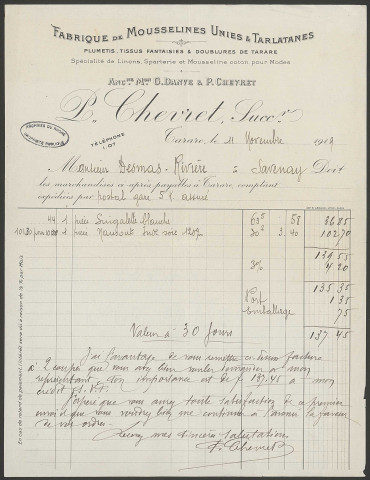 FABRIQUE DE MOUSSELINES UNIES & TARLATANES
PLUMETIS, TISSUS FANTAISIES & DOUBLURES DE TARARE
Spécialité de Linons, Sparterie et Mousseline coton pour Modes
ANCNE MON O. DANVE & P. CHEVRET
P. Chevret, Succr
TÉLÉPHONE
1.07
Tarare, le 21 Novembre 1919
Monsieur Desmas-Rivière à Savenay Doit
les marchandises ci après payables à Tarare, comptant
expédiées par postal gare 5 K assuré
44 1 pièce Singalette blanche 68 58
1 pièce Nansouk 30 3.40 102.70
139 55
3% 4 20
135 35
Port 1 35
emballage 75
Valeur à 30 Jours 137 45
J'ai l'avantage de vous remettre ci dessus facture
de 2 coupes que vous avez bien voulu à mon
représentant, dont importance est de F 137.45 à mon
crédit S. Vit.
J'espère que vous aurez toute satisfaction de ce premier
envoi et que vous voudrez bien me continuer à l'avenir la faveur
de vos ordres.
Recevez mes sincères salutations.
P. Chevret